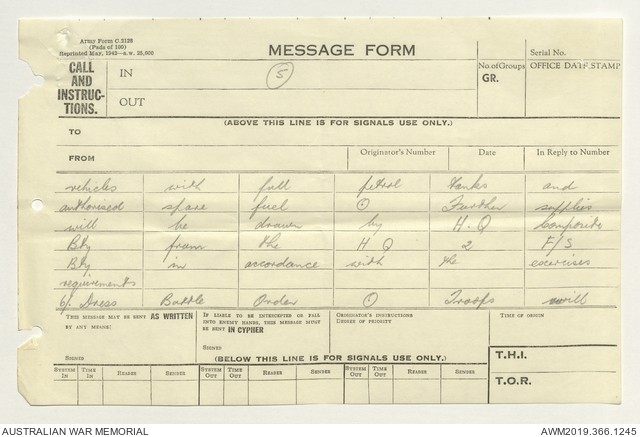 Army Form C.2128
(Pads of 100)
Reprinted May, 1942—a.w. 25,800
MESSAGE FORM
Serial No.
CALL AND INSTRUC- TIONS.
IN
5
No. of Groups
GR.
OFFICE DATE STAMP
OUT
(ABOVE THIS LINE IS FOR SIGNALS USE ONLY.)
TO
FROM
Originator's Number
Date
In Reply to Number
vehicles with full petrol tanks and
authorised spare fuel O Further supplies
will be drawn by H.Q Composite
Bty from the H Q 2 F/S
Bty in accordance with the exercises
requirements
6/. Dress Battle Order O Troops will
THIS MESSAGE MAY BE SENT AS WRITTEN
BY ANY MEANS:
SIGNED
IF LIABLE TO BE INTERCEPTED OR FALL
INTO ENEMY HANDS, THIS MESSAGE MUST
BE SENT IN CYPHER
SIGNED
ORIGINATOR'S INSTRUCTIONS
DEGREE OF PRIORITY
TIME OF ORIGIN
(BELOW THIS LINE IS FOR SIGNALS USE ONLY.)
T.H.I.
SYSTEM IN TIME IN READER SENDER SYSTEM OUT TIME OUT READER SENDER SYSTEM OUT TIME OUT READER SENDER
T.O.R.
AUSTRALIAN WAR MEMORIAL
AWM2019.366.1245